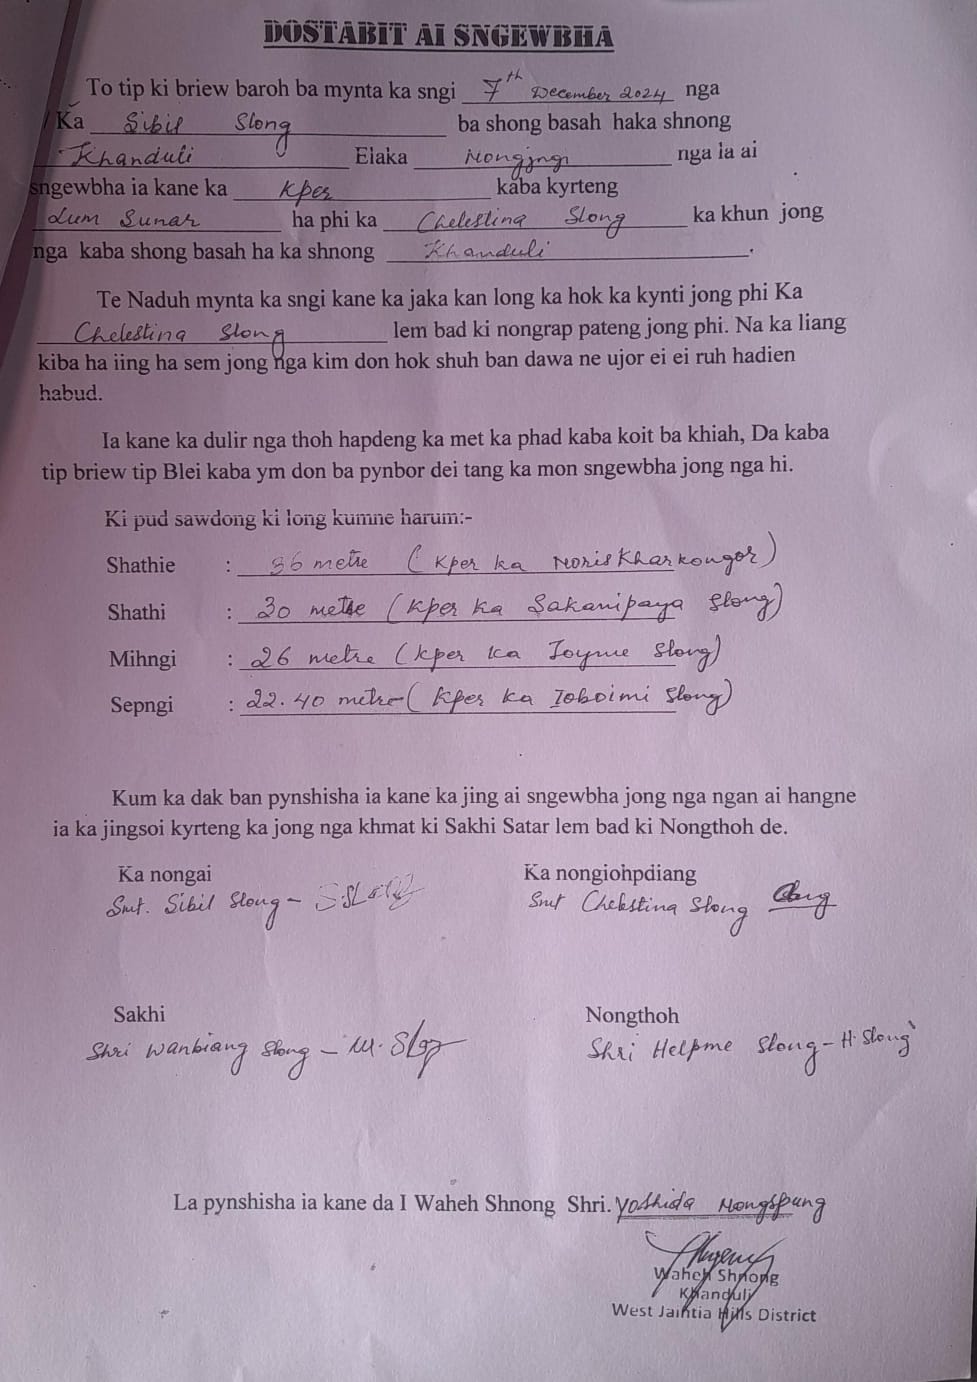 DOSTABIT AI SNGEWBHA
To tip ki briew baroh ba mynta ka sngi 7th December 2024 nga
Ka Sibil Slong ba shong basah haka shnong
Khanduli Elaka Nongjngi nga ia ai
sngewbha ia kane ka Kper kaba kyrteng
Lum Sunar ha phi ka Chelestina Slong ka khun jong
nga kaba shong basah ha ka shnong Khanduli.
Te Naduh mynta ka sngi kane ka jaka kan long ka hok ka kynti jong phi Ka
Chelestina Slong lem bad ki nongrap pateng jong phi. Na ka liang
kiba ha iing ha sem jong nga kim don hok shuh ban dawa ne ujor ei ei ruh hadien
habud.
Ia kane ka dulir nga thoh hapdeng ka met ka phad kaba koit ba khiah, Da kaba
tip briew tip Blei kaba ym don ba pynbor dei tang ka mon sngewbha jong nga hi.
Ki pud sawdong ki long kumne harum:-
Shathie : 36 metre (Kper ka Noris Kharkongor)
Shathi : 30 metre (Kper ka Sakanipaya Slong)
Mihngi : 26 metre (Kper ka Joyme Slong)
Sepngi : 22.40 metre (Kper ka Ioboimi Slong)
Kum ka dak ban pynshisha ia kane ka jing ai sngewbha jong nga ngan ai hangne
ia ka jingsoi kyrteng ka jong nga khmat ki Sakhi Satar lem bad ki Nongthoh de.
Ka nongai Ka nongiohpdiang
Smt. Sibil Slong - Smt Chelestina Slong
Sakhi Nongthoh
Shri Wanbiang Slong - W. Slong Shri Helpme Slong - H. Slong
La pynshisha ia kane da I Waheh Shnong Shri. Yoshida Nongspung
Waheh Shnong
Khanduli
West Jaintia Hills District